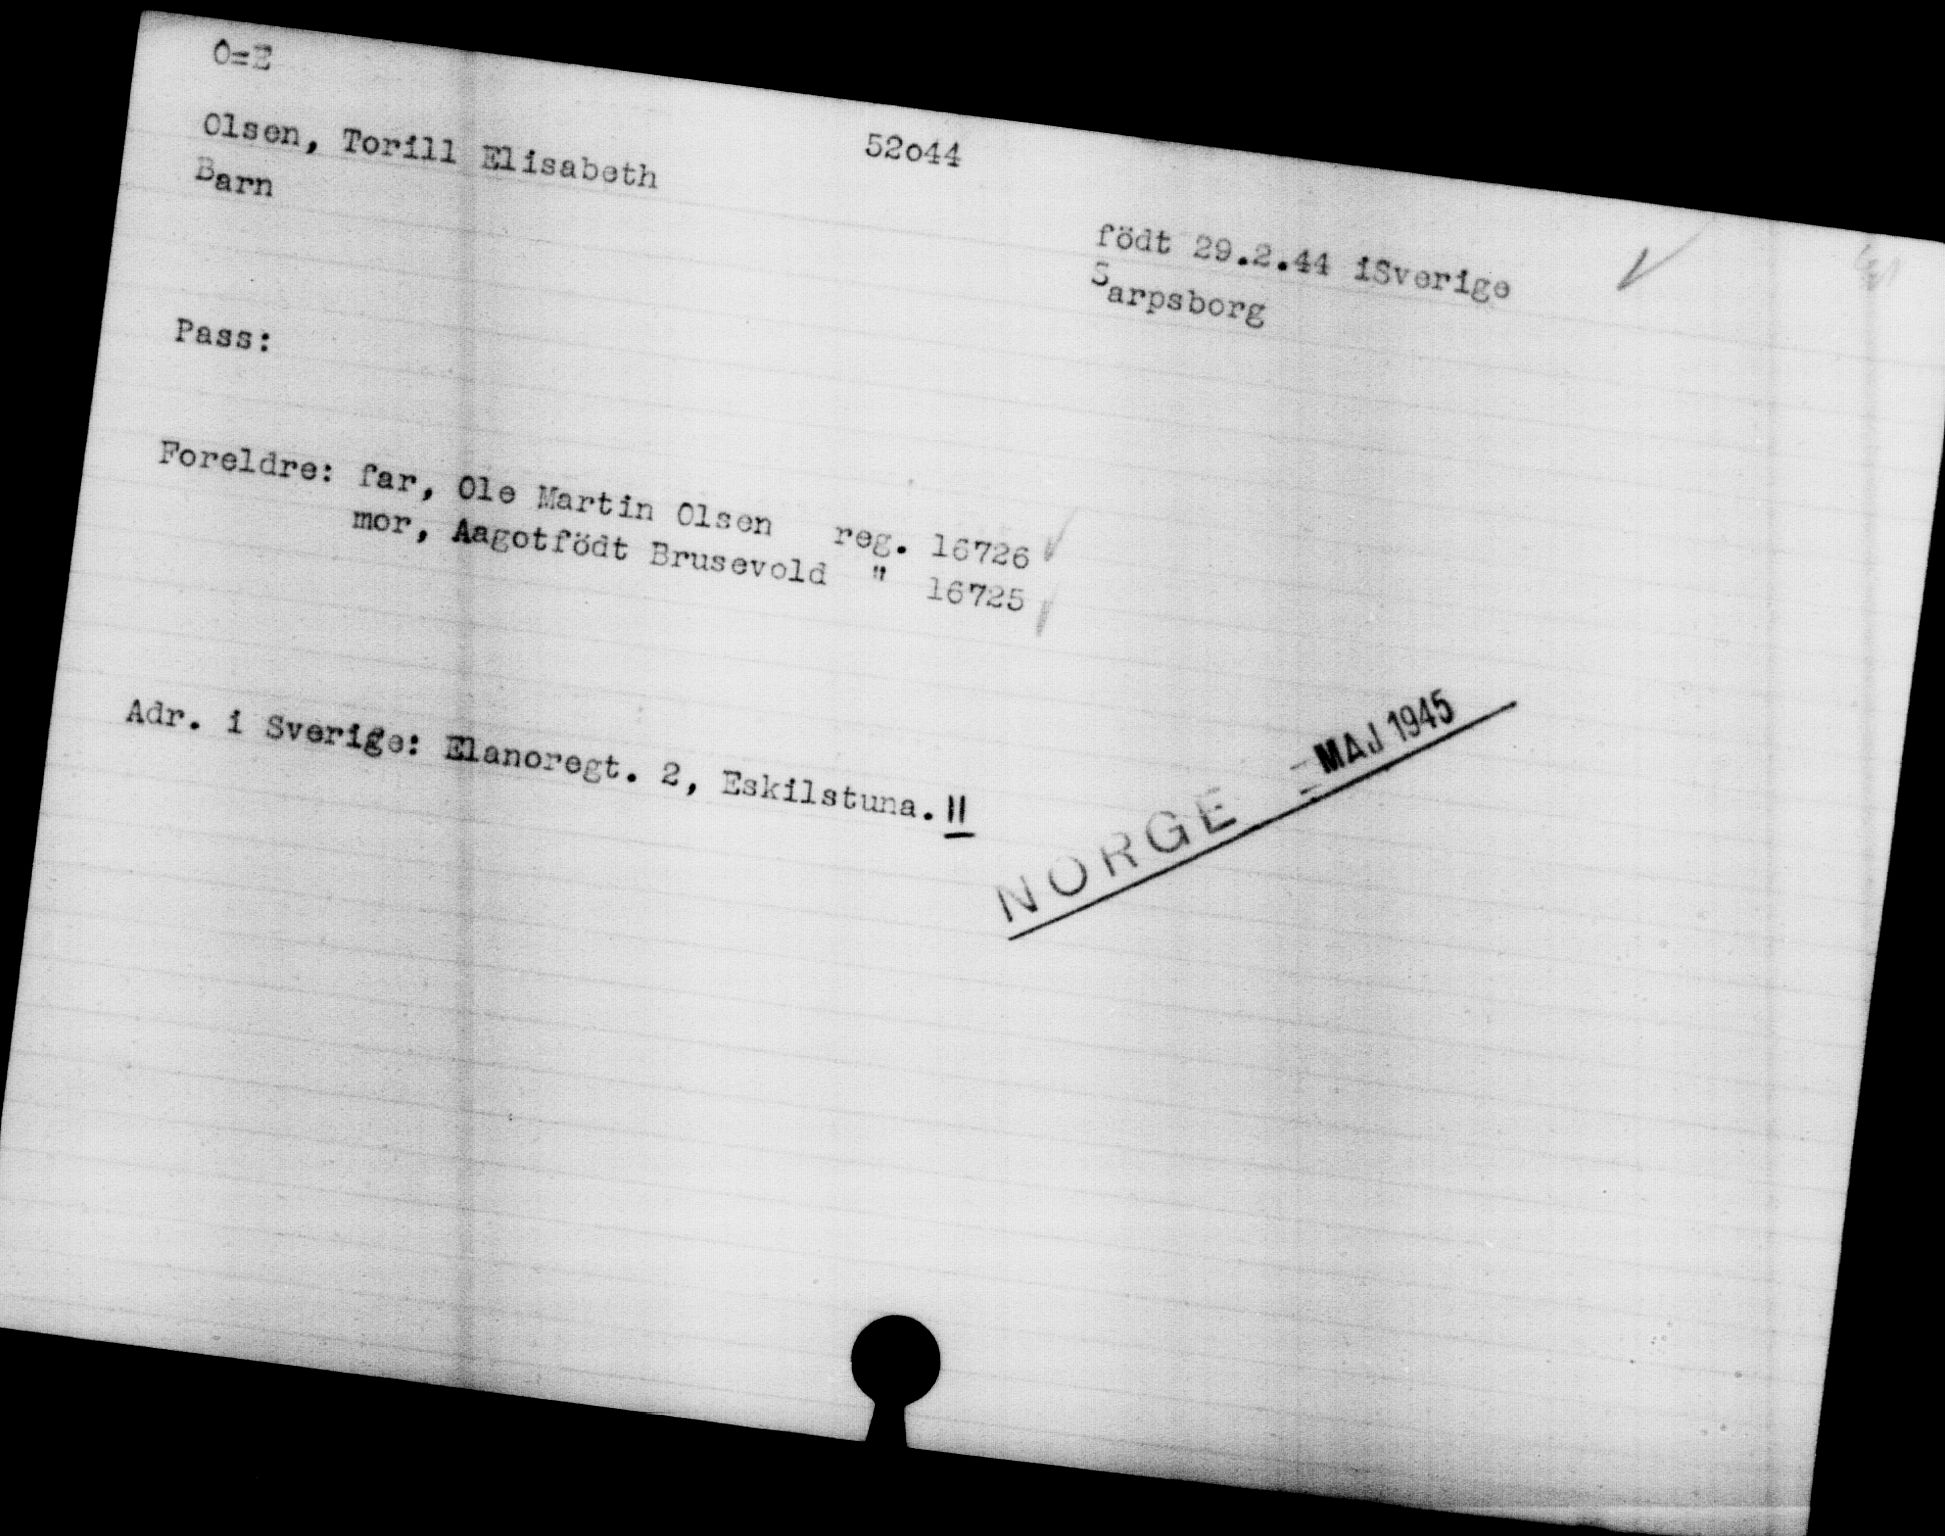 O=E
Olsen, Torill Elisabeth 52o44
Barn
född 29.2.44 iSverige
Sarpsborg
Pass:
Foreldre: far, Ole Martin Olsen reg. 16726
mor, Aagotfödt Brusevold " 16725
Adr. i Sverige: Elanoregt. 2, Eskilstuna. II
NORGE MAJ 1945